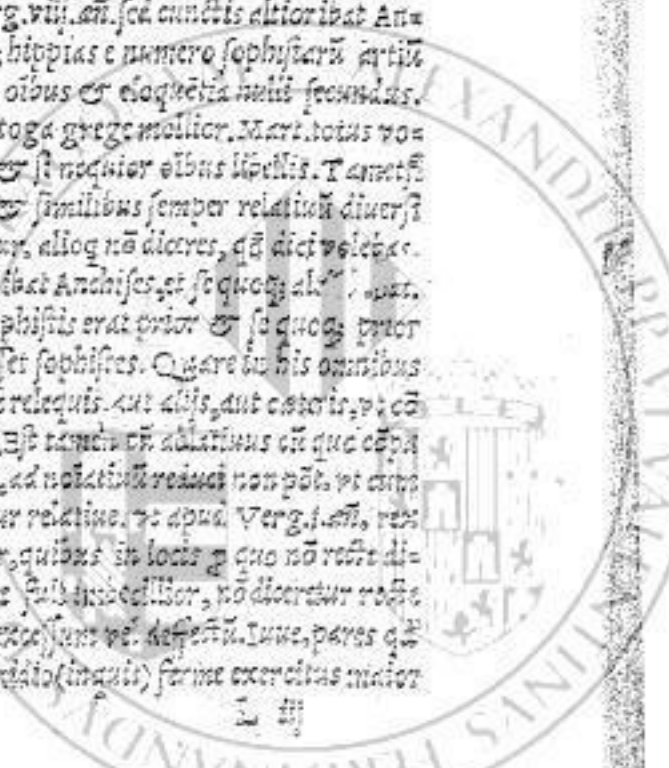 g.viij.añ.sed cunctis altior ibat An=
hippias e numero sophistarũ artiũ
oĩbus & eloquẽtia nulli secundus.
toga grege mollior. Mart. totus vo=
& sit nequior oĩbus libellis. Tametsi
& similibus semper relatiuũ diuersi
ur, alioq nõ diceres, qđ dici volebas.
ibat Anchises, et se quoq;
phistis erat prior & se quoq; prior
set sophistes. Quare in his omnibus
relequis. aut alijs, aut cæteris, vt cõ
Est tamen cũ ablatiuus cũ quo cõpa
, ad noĩatiuũ reduci non põt, vt cum
ur relatiue. vt apud Verg.j.añ. rex
r, quibus in locis p quo nõ recte di=
e fuit imbecillior, nõ diceretur recte
excessum vel deffectũ. Iuue, pares qđ
(inquit) ferme exercitus maior
L iij